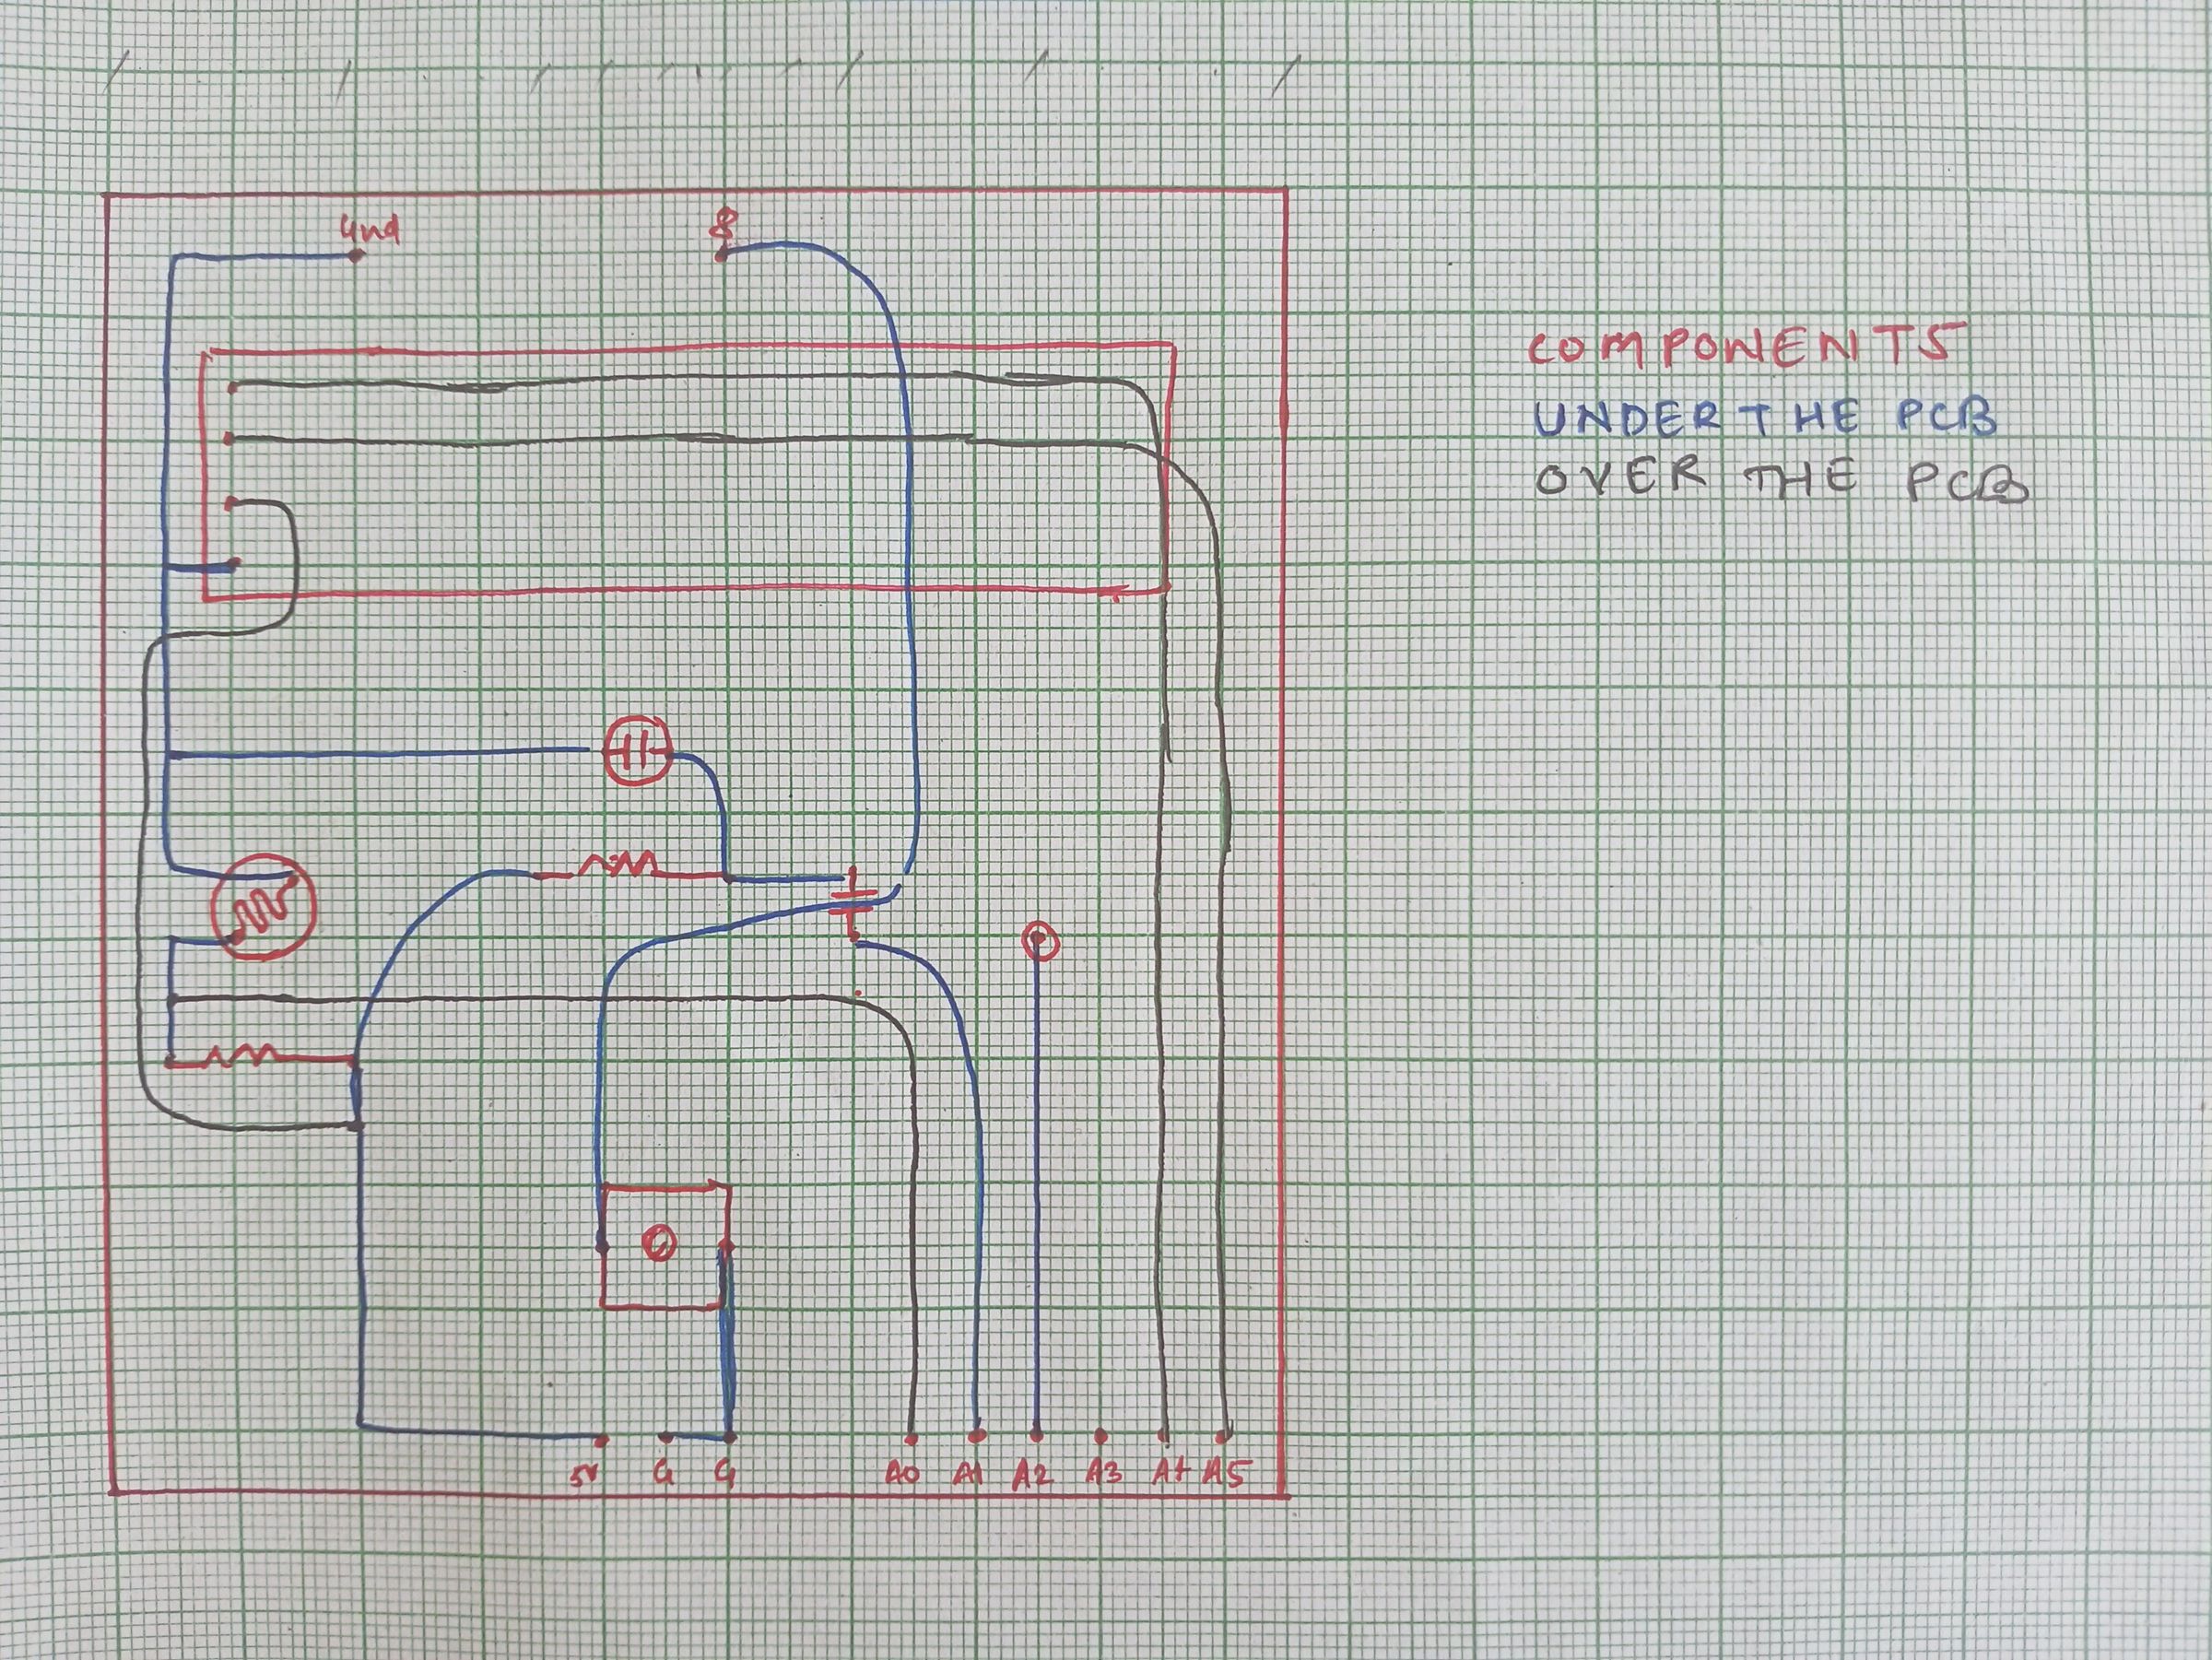 Gnd 8
COMPONENTS
UNDER THE PCB
OVER THE PCB
5V G G A0 A1 A2 A3 A4 A5